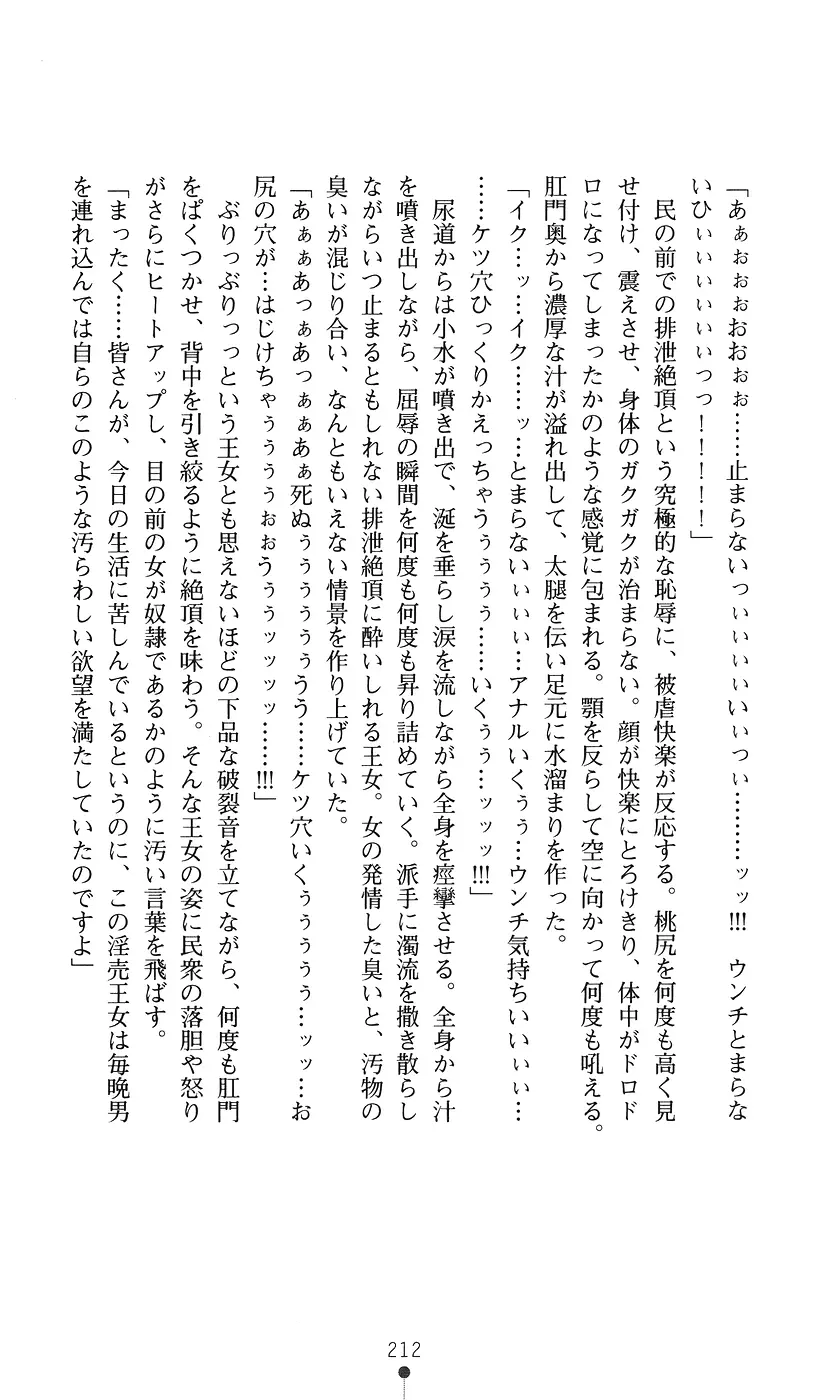 「あぁぉぉぉおおぉぉ……止まらないっぃぃぃぃいぃっぃ………ッッ!!!　ウンチとまらな
いひぃぃぃぃぃぃっっ！！！！！」
　民の前での排泄絶頂という究極的な恥辱に、被虐快楽が反応する。桃尻を何度も高く見
せ付け、震えさせ、身体のガクガクが治まらない。顔が快楽にとろけきり、体中がドロド
ロになってしまったかのような感覚に包まれる。顎を反らして空に向かって何度も吼える。
肛門奥から濃厚な汁が溢れ出して、太腿を伝い足元に水溜まりを作った。
「イク…ッ…イク……ッ…とまらないぃぃぃ…アナルいくぅぅ…ウンチ気持ちいいぃぃ…
……ケツ穴ひっくりかえっちゃうぅぅぅぅ……いくぅぅ…ッッッ!!!」
　尿道からは小水が噴き出で、涎を垂らし涙を流しながら全身を痙攣させる。全身から汁
を噴き出しながら、屈辱の瞬間を何度も何度も昇り詰めていく。派手に濁流を撒き散らし
ながらいつ止まるともしれない排泄絶頂に酔いしれる王女。女の発情した臭いと、汚物の
臭いが混じり合い、なんともいえない情景を作り上げていた。
「あぁぁあっぁあっぁぁあぁ死ぬぅぅぅぅぅぅうう……ケツ穴いくぅぅぅぅぅ…ッッ…お
尻の穴が…はじけちゃぅぅぅぅぉぉうぅぅッッッッ……!!!」
　ぶりっぶりっっという王女とも思えないほどの下品な破裂音を立てながら、何度も肛門
をぱくつかせ、背中を引き絞るように絶頂を味わう。そんな王女の姿に民衆の落胆や怒り
がさらにヒートアップし、目の前の女が奴隷であるかのように汚い言葉を飛ばす。
「まったく……皆さんが、今日の生活に苦しんでいるというのに、この淫売王女は毎晩男
を連れ込んでは自らのこのような汚らわしい欲望を満たしていたのですよ」
212